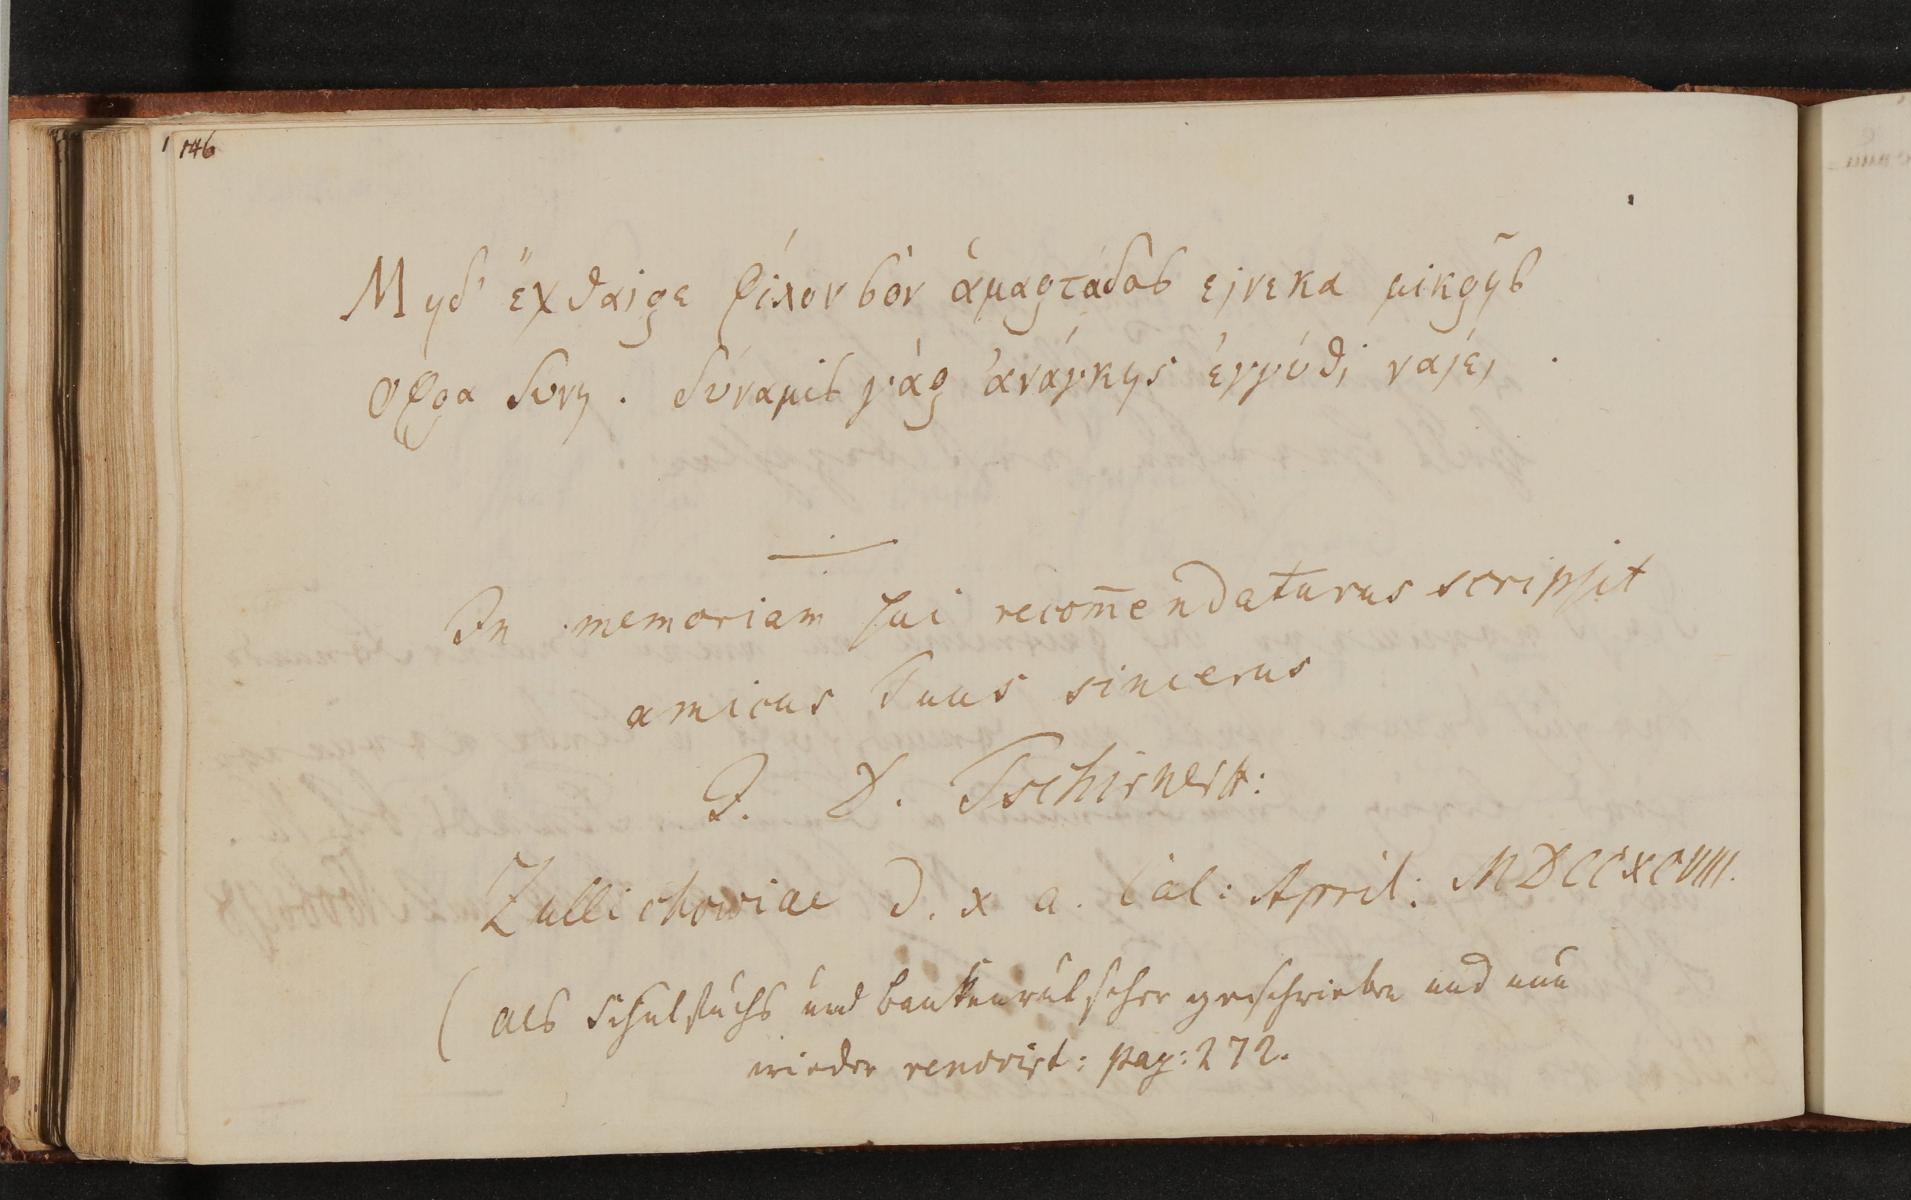 146
Μηδ' ἔχθαιρε φίλον σὸν ἁμαρτάδος εἱνεκα μικρῆς
οφρα δυνη. δύναμις γὰρ ἀνάγκης ἐγγύθι ναίει.
In memoriam sui recom̄endaturus scripsit
amicus Tuus sincerus
J. D. Tschirn
Zullichowiae d. x a. Cal: April: MDCCXCVIII.
(als Schulfuchs und bankenrutscher geschrieben und nun
wieder renovirt: pag: 272.